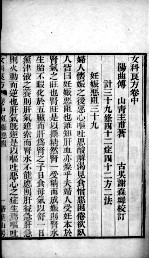 女科良方卷中
陽曲傅 山青主甫著 古杲謝森墀校訂
計三十九條四十一症四十二方二法
妊娠惡阻三十九
婦人懷娠之後惡心嘔吐思酸解渴見食憎惡困倦欲臥
人皆曰妊娠惡阻也誰知肝血太燥乎夫婦人受妊本於
腎氣之旺也腎旺是以攝精然腎一受精而成娠則腎水
生胎不暇化於五臟而肝為腎之子日食母氣以舒一日無
津液之養則肝氣迫索而腎水不能應則肝益急肝急
則火動而逆也肝氣既逆是以嘔吐惡心之症生焉嘔吐